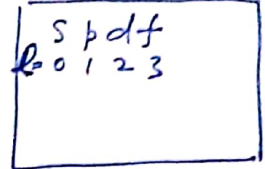 s p d f
l= 0 1 2 3